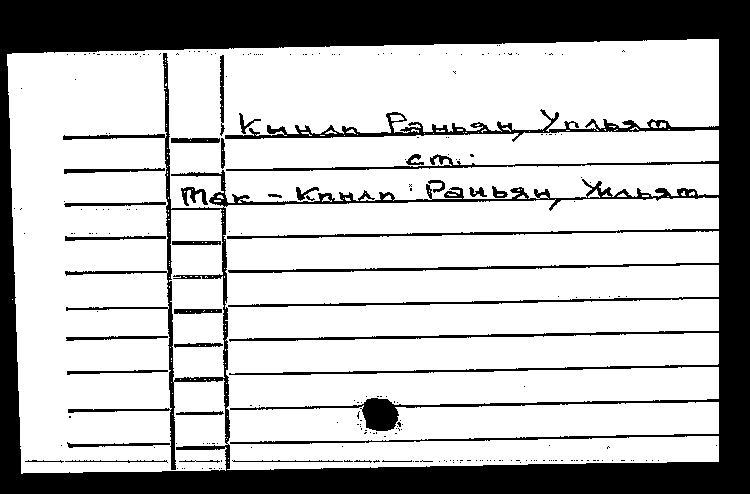 Кинли Раньян, Уильям
см.:
Мак-Кинли Раньян, Уильям